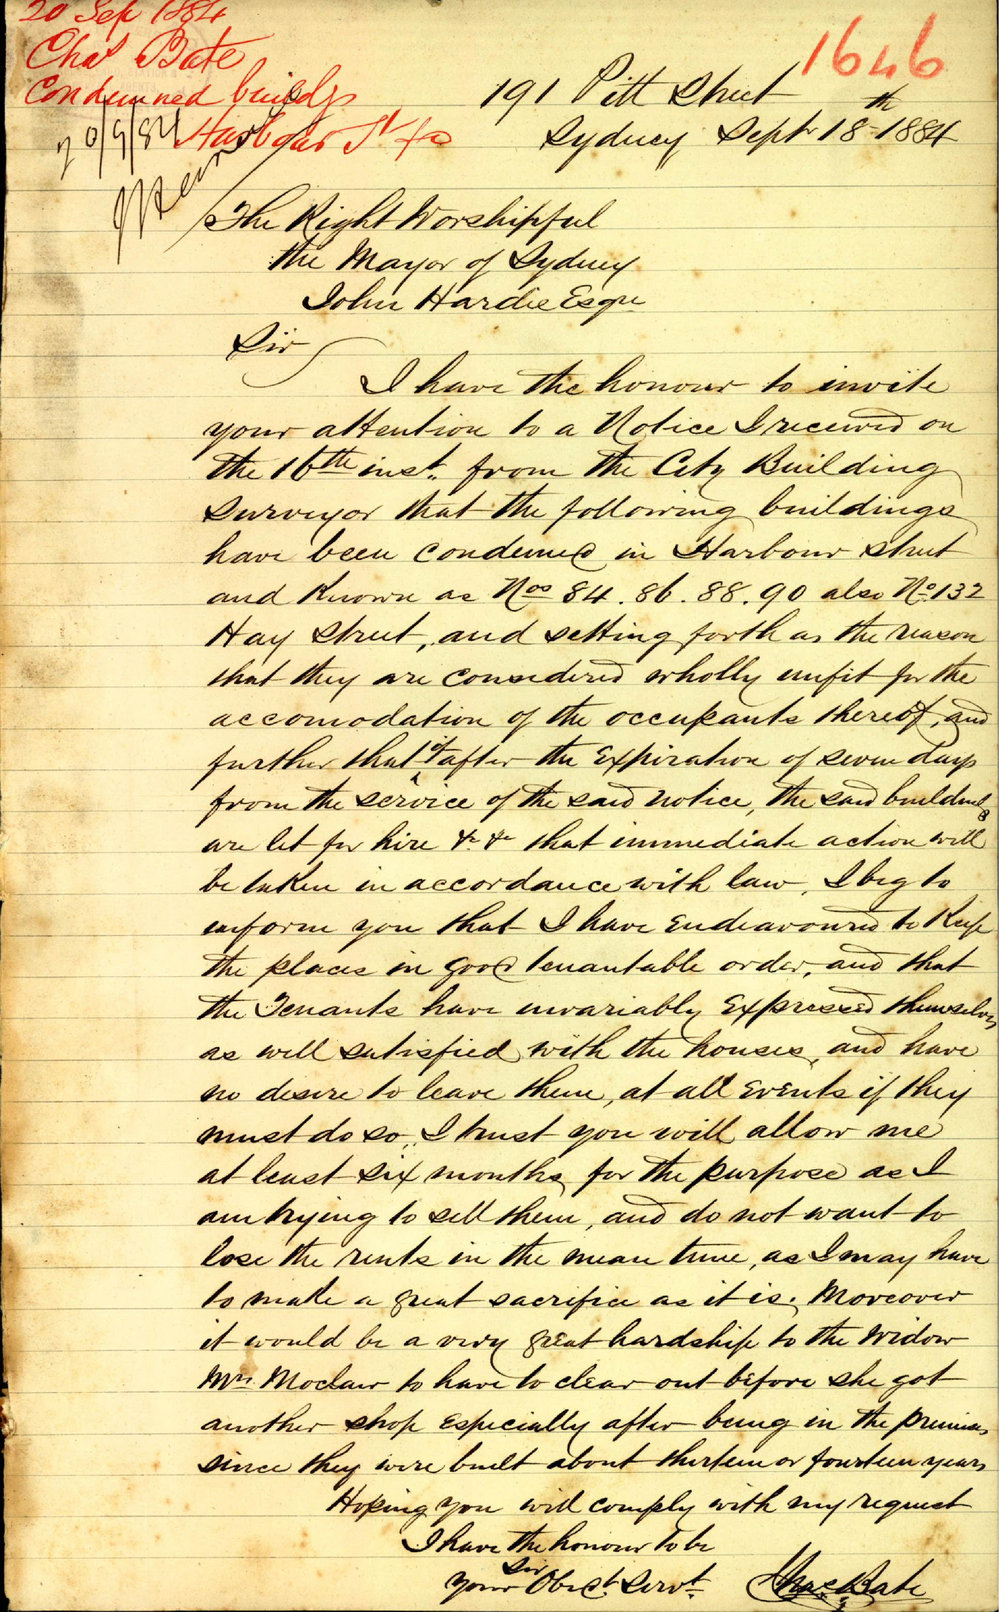 20 Sep 1884
Chas Bate
Condemned buildgs
Harbour St &c
20/9/84
1646
191 Pitt Street
Sydney Sept 18th 1884
The Right Worshipful
the Mayor of Sydney
John Hardie Esqre
Sir
I have the honour to invite
your attention to a Notice I received on
the 16th inst. from the City Building
Surveyor that the following buildings
have been condemned in Harbour Street
and known as Nos 84. 86. 88. 90 also No 132
Hay Street, and setting forth as the reason
that they are considered wholly unfit for the
accomodation of the occupants thereof, and
further that if after the Expiration of seven days
from the service of the said notice, the said buildings
are let for hire &c &c that immediate action will
be taken in accordance with law, I beg to
inform you that I have Endeavoured to Keep
the places in good tenantable order, and that
the Tenants have invariably Expressed themselves
as well satisfied with the houses, and have
no desire to leave them, at all Events if they
must do so, I trust you will allow me
at least six months for the purpose as I
am trying to sell them, and do not want to
lose the rents in the mean time, as I may have
to make a great sacrifice as it is. Moreover
it would be a very great hardship to the Widow
Mrs Moclair to have to clear out before she got
another shop Especially after being in the premises
since they were built about thirteen or fourteen years
Hoping you will comply with my request
I have the honour to be
Sir
Your Obedt Servt Chas Bate